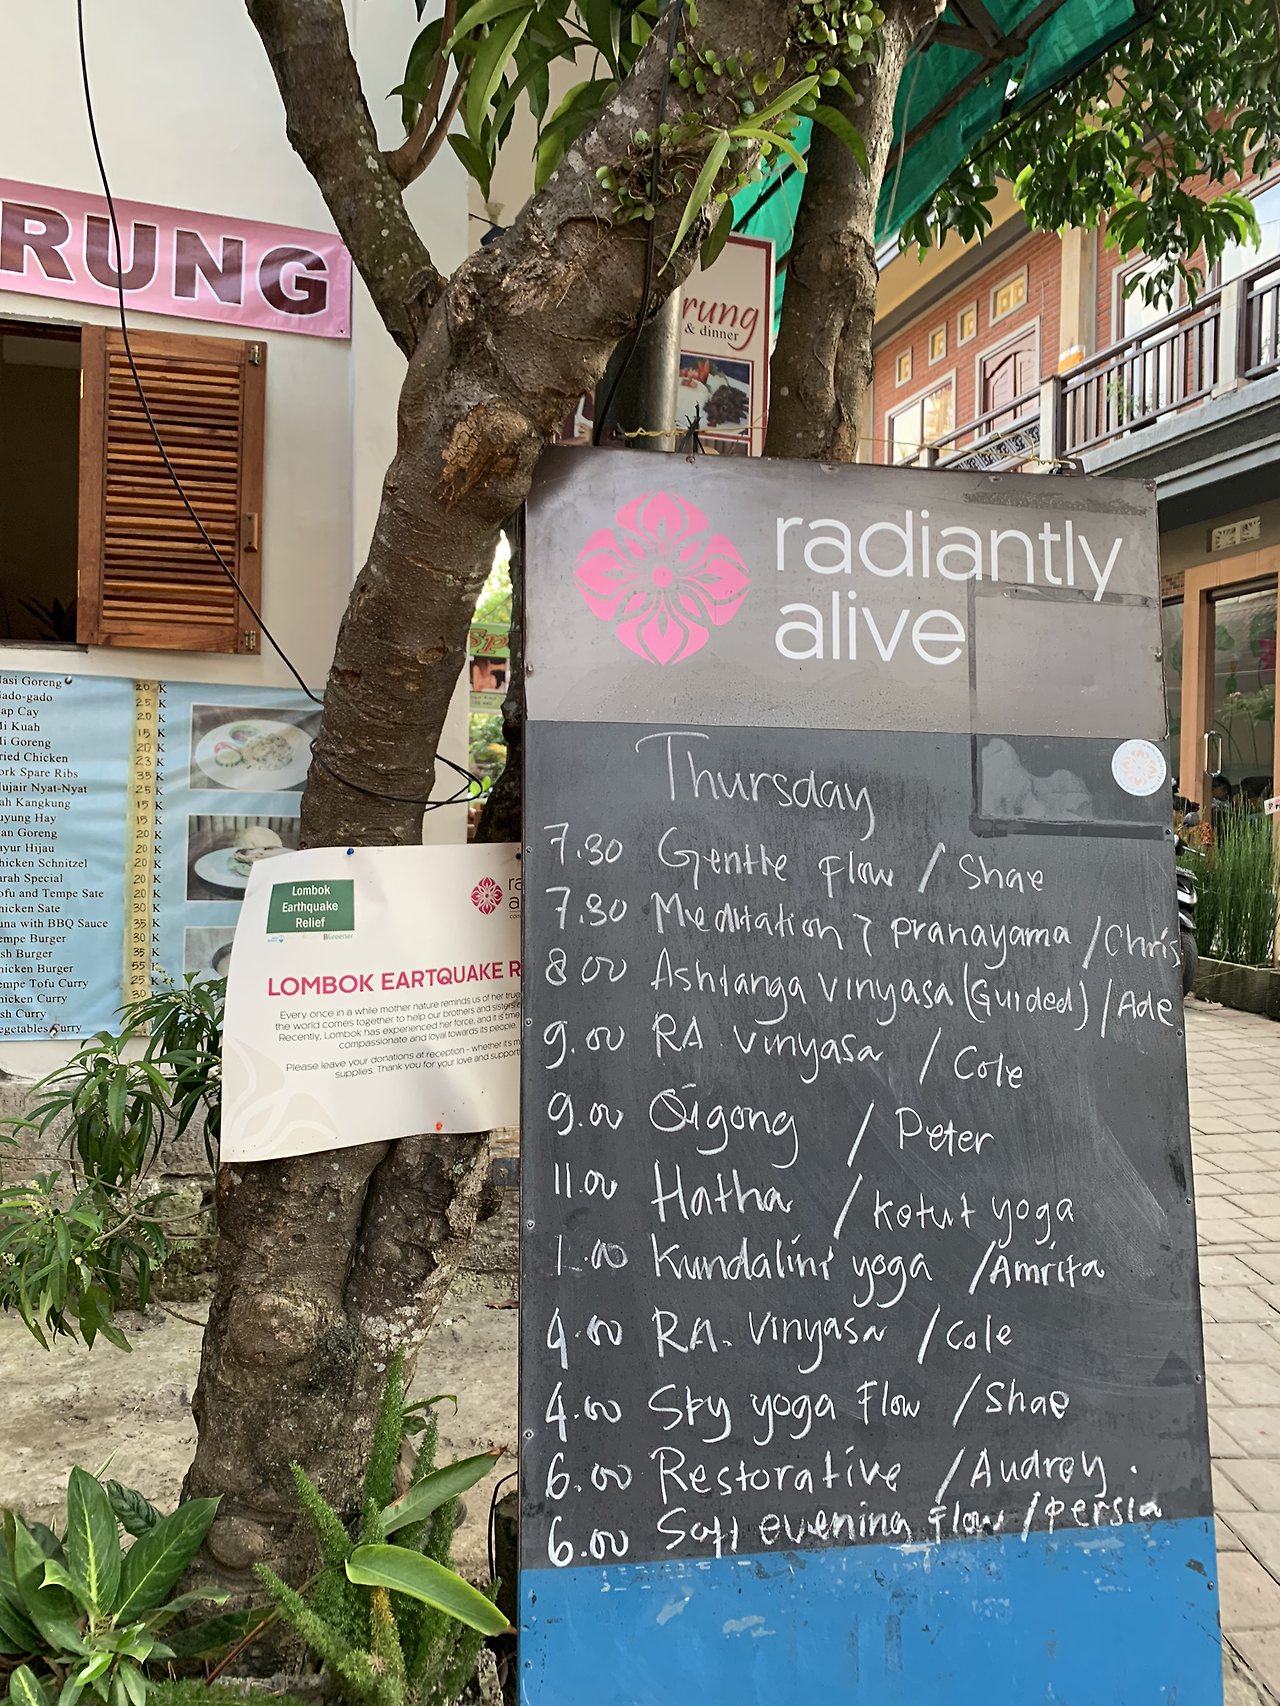 RUNG
rung
& dinner
radiantly
alive
Thursday
7.30 Genthe Flow / Shae
7.30 Meditation & Pranayama / Chris
8.00 Ashtanga Vinyasa (Guided) / Ade
9.00 RA Vinyasa / Cole
9.00 Qigong / Peter
11.00 Hatha / Ketut yoga
1.00 Kundalini yoga / Amrita
4.00 RA. Vinyasa / Cole
4.00 Sky yoga Flow / Shae
6.00 Restorative / Audrey.
6.00 Soft evening Flow / Persia
Lombok
Earthquake
Relief
BGreener
LOMBOK EARTQUAKE R
Every once in a while mother nature reminds us of her true
the world comes together to help our brothers and sisters
Recently, Lombok has experienced her force, and it is time
compassionate and loyal towards its people.
Please leave your donations at reception - whether it's m
supplies. Thank you for your love and support
asi Goreng 20 K
ado-gado 25 K
ap Cay 20 K
i Kuah 15 K
i Goreng 20 K
ried Chicken 23 K
ork Spare Ribs 35 K
ujair Nyat-Nyat 25 K
ah Kangkung 15 K
uyung Hay 15 K
an Goreng 20 K
ayur Hijau 20 K
hicken Schnitzel 20 K
arah Special 20 K
ofu and Tempe Sate 20 K
hicken Sate 30 K
una with BBQ Sauce 35 K
empe Burger 30 K
sh Burger 35 K
hicken Burger 55 K
empe Tofu Curry 25 K
hicken Curry 30 K
sh Curry
egetables Curry